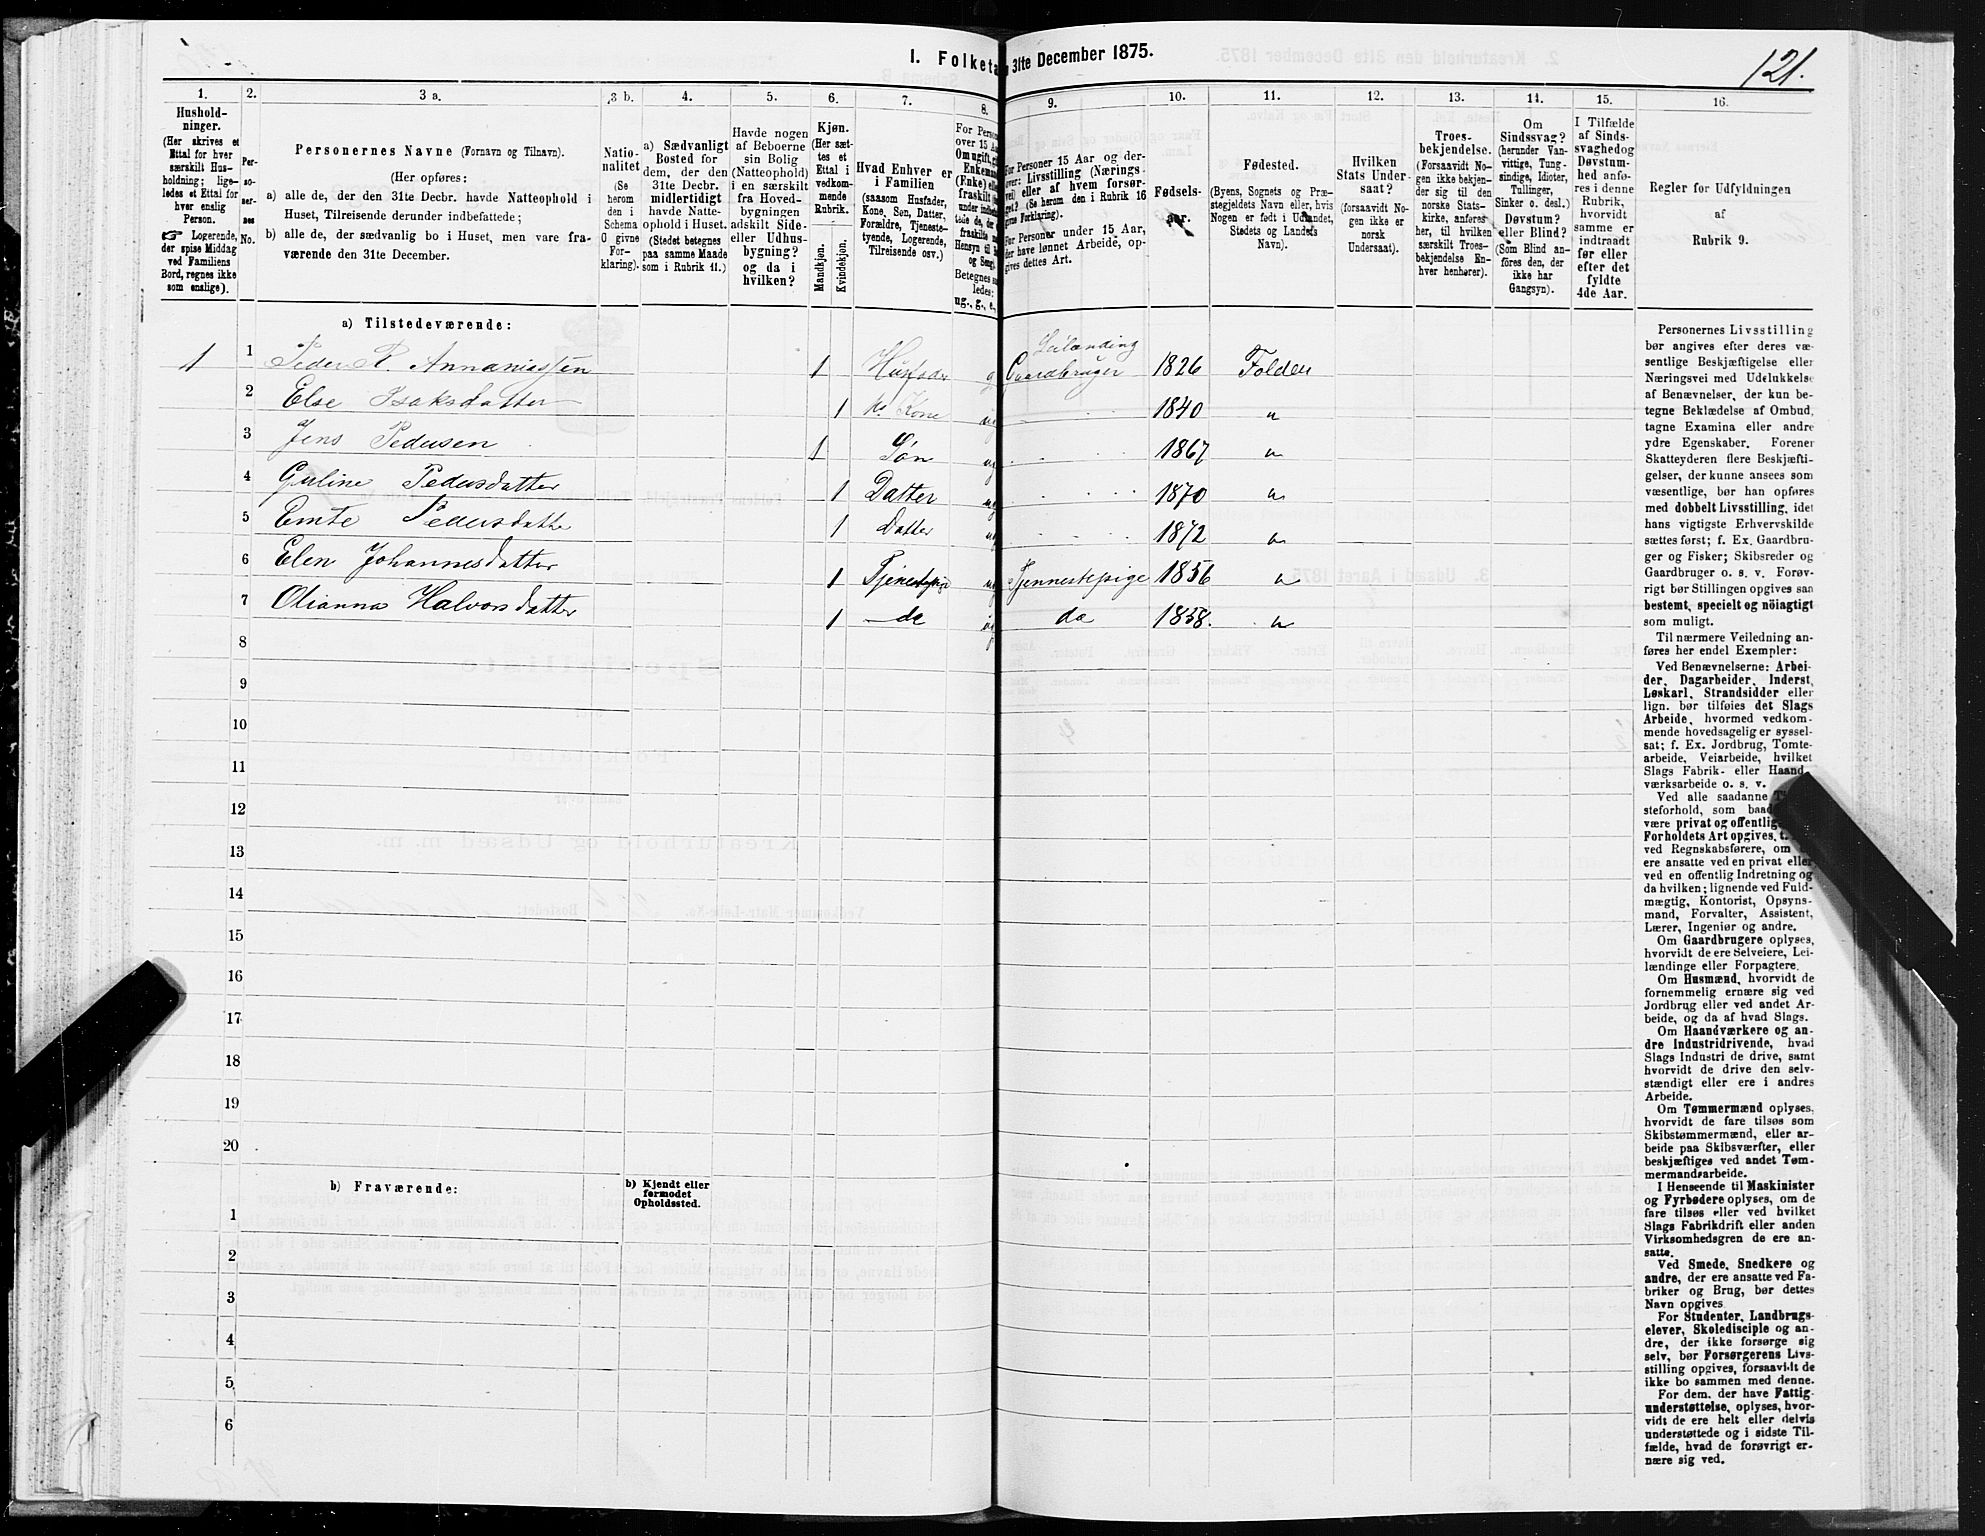 1. Folketa
n 31te December 1875.
121.
1.
2.
3 a.
3 b.
4.
5.
6.
7.
8.
9.
10.
11.
12.
13.
14.
15.
16.
Hushold-
ninger.
(Her skrives et
Ettal for hver
særskilt Hus-
holdning; lige-
ledes et Ettal for
hver enslig
Person.
☞ Logerende,
der spise Middag
ved Familiens
Bord, regnes ikke
som enslige).
Per-
so-
ner-
nes
No.
Personernes Navne (Fornavn og Tilnavn).
(Her opføres:
a) alle de, der den 31te Decbr. havde Natteophold i
Huset, Tilreisende derunder indbefattede;
b) alle de, der sædvanlig bo i Huset, men vare fra-
værende den 31te December.
Natio-
nalitet
(Se
herom
den i
Schema
O givne
For-
klaring).
a) Sædvanligt
Bosted for
dem, der den
31te Decbr.
midlertidigt
havde Natte-
ophold i Huset.
(Stedet betegnes
paa samme Maade
som i Rubrik 11.)
Havde nogen
af Beboerne
sin Bolig
(Natteophold)
i en særskilt
fra Hoved-
bygningen
adskilt Side-
eller Udhus-
bygning?
og da i
hvilken?
Kjøn.
(Her sæt-
tes et
Ettal i
vedkom-
mende
Rubrik.
Mandkjøn.
Kvindekjøn.
Hvad Enhver er
i Familien
(saasom Husfader,
Kone, Søn, Datter,
Forældre, Tjeneste-
tyende, Logerende,
Tilreisende osv.)
For Person
over 15 Aar
Om ugift, gift
Enkemand
(Enke) eller
fraskilt
Betegnes så
ledes:
ug., g., e.,
For Personer 15 Aar og der-
over: Livsstilling (Nærings
vei) eller af hvem forsør-
get? (Se herom den i Rubrik 16
givne Forklaring).
For Personer under 15 Aar,
der have lønnet Arbeide, op-
gives dettes Art.
Fødsels-
aar.
Fødested.
(Byens, Sognets og Præ-
stegjeldets Navn eller, hvis
Nogen er født i Udlandet,
Stedets og Landets
Navn).
Hvilken
Stats Under-
saat?
(forsaavidt No-
gen ikke er
norsk
Undersaat).
Troes-
bekjendelse.
(Forsaavidt No-
gen ikke bekjen-
der sig til den
norske Stats-
kirke, anføres
her, til hvilken
særskilt Troes-
bekjendelse En-
hver henhører).
Om
Sindssvag?
(herunder Van-
vittige, Tung-
sindige, Idioter,
Tullinger,
Sinker o. desl.)
Døvstum?
eller Blind?
(Som Blind an-
føres den, der
ikke har
Gangsyn).
I Tilfælde
af Sinds-
svaghed og
Døvstum-
hed anfø-
res i denne
Rubrik,
hvorvidt
samme er
indtraadt
før eller
efter det
fyldte
4de Aar.
Regler for Udfyldningen
af
Rubrik 9.
a) Tilstedeværende:
1 1 Peder R. Annaniassen 1 Husfader g Leilænding Gaardbruger 1826 Folden
2 Else Isaksdatter 1 Kone 1840 "
3 Jens Pedersen 1 Søn ug 1867 "
4 Guline Pedersdatter 1 Datter ug 1870 "
5 Emte Pedersdatte 1 Datter ug 1872 "
6 Elen Johannesdatter 1 Tjenestepige ug Tjennestepige 1856 "
7 Olianna Halvorsdatter 1 do ug do 1858. "
8
9
10
11
12
13
14
15
16
17
18
19
20
b) Fraværende:
b) Kjendt eller
formodet
Opholdssted.
1
2
3
4
5
6
Personernes Livsstilling
bør angives efter deres væ-
sentlige Beskjæftigelse eller
Næringsvei med Udelukkelse
af Benævnelser, der kun be-
tegne Beklædelse af Ombud,
tagne Examina eller andre
ydre Egenskaber. Forener
Skatteyderen flere Beskjæfti-
gelser, der kunne ansees som
væsentlige, bør han opføres
med dobbelt Livsstilling, idet
hans vigtigste Erhvervskilde
sættes først; f. Ex. Gaardbru-
ger og Fisker; Skibsreder og
Gaardbruger o. s. v. Forøv-
rigt bør Stillingen opgives saa
bestemt, specielt og nöiagtigt
som muligt.
Til nærmere Veiledning an-
føres her endel Exempler:
Ved Benævnelserne: Arbei-
der, Dagarbeider, Inderst,
Løskarl, Strandsidder eller
lign. bør tilføies det Slags
Arbeide, hvormed vedkom-
mende hovedsagelig er syssel-
sat; f. Ex. Jordbrug, Tomte-
arbeide, Veiarbeide, hvilket
Slags Fabrik- eller Haand-
værksarbeide o. s. v.
Ved alle saadanne
steforhold, som baade
være privat og offentlig,
Forholdets Art opgives,
ved Regnskabsførere, om
ere ansatte ved en privat eller
ved en offentlig Indretning og
da hvilken; lignende ved Fuld-
mægtig, Kontorist, Opsyns-
mand, Forvalter, Assistent,
Lærer, Ingeniør og andre.
Om Gaardbrugere oplyses,
hvorvidt de ere Selveiere, Lei-
lændinge eller Forpagtere.
Om Husmænd, hvorvidt de
fornemmelig ernære sig ved
Jordbrug eller ved andet Ar-
beide, og da af hvad Slags.
Om Haandværkere og an-
dre Industridrivende, hvad
Slags Industri de drive, samt
hvorvidt de drive den selv-
stændigt eller ere i andres
Arbeide.
Om Tømmermænd oplyses,
hvorvidt de fare tilsøs som
Skibstømmermænd, eller ar-
beide paa Skibsværfter, eller
beskjæftiges ved andet Tøm-
mermandsarbeide.
I Henseende til Maskinister
og Fyrbødere oplyses, om de
fare tilsøs eller ved hvilket
Slags Fabrikdrift eller anden
Virksomhedsgren de ere an-
satte.
Ved Smede, Snedkere og
andre, der ere ansatte ved Fa-
briker og Brug, bør dettes
Navn opgives
For Studenter, Landbrugs-
elever, Skoledisciple og an-
dre, der ikke forsørge sig
selv, bør Forsørgerens Livs-
stilling opgives, forsaavidt de
ikke bo sammen med denne.
For dem, der have Fattig-
understøttelse, oplyses, hvor-
vidt de ere helt eller delvis
understøttede og i sidste Til-
fælde, hvad de forøvrigt er-
nære sig ved.